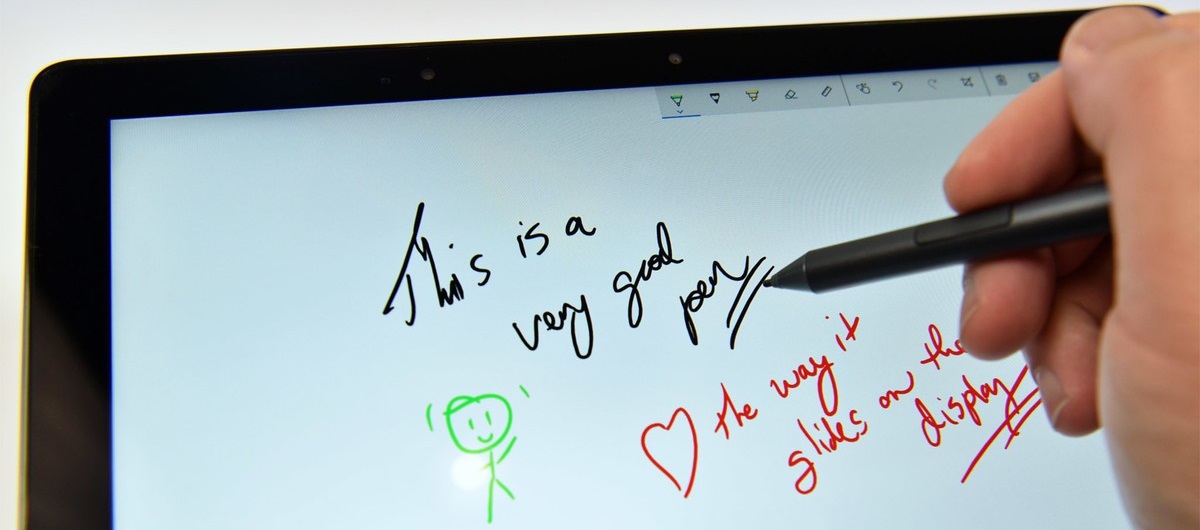 This is a
very good
pen
the way it
glides on the
display